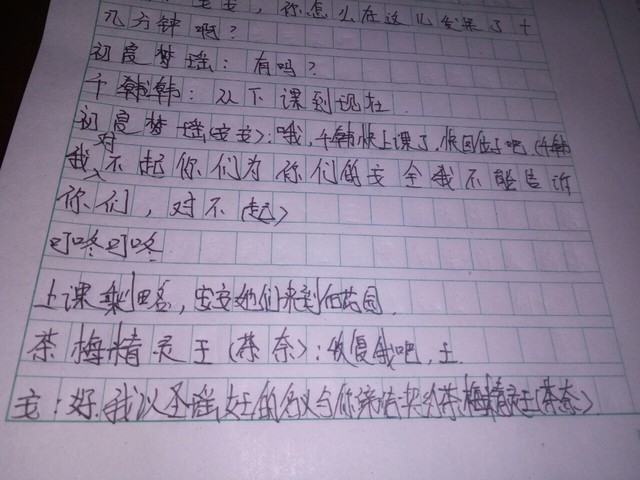 你怎么在这儿发呆了十
几分钟啊？
初夏梦瑶：有吗？
千韩韩：从下课到现在
初夏梦瑶(安安)：哦，千韩快上课了，快回位子吧（千韩
我对不起你们为你们的安全我不能告诉
你们，对不起〉
叮咚叮咚
上课 安安她们来到后花园
茶梅精灵王（茶奈）：恢复我吧，主
主：好，我以圣瑶女王的名义与你缔结契约茶梅精灵王（茶奈）